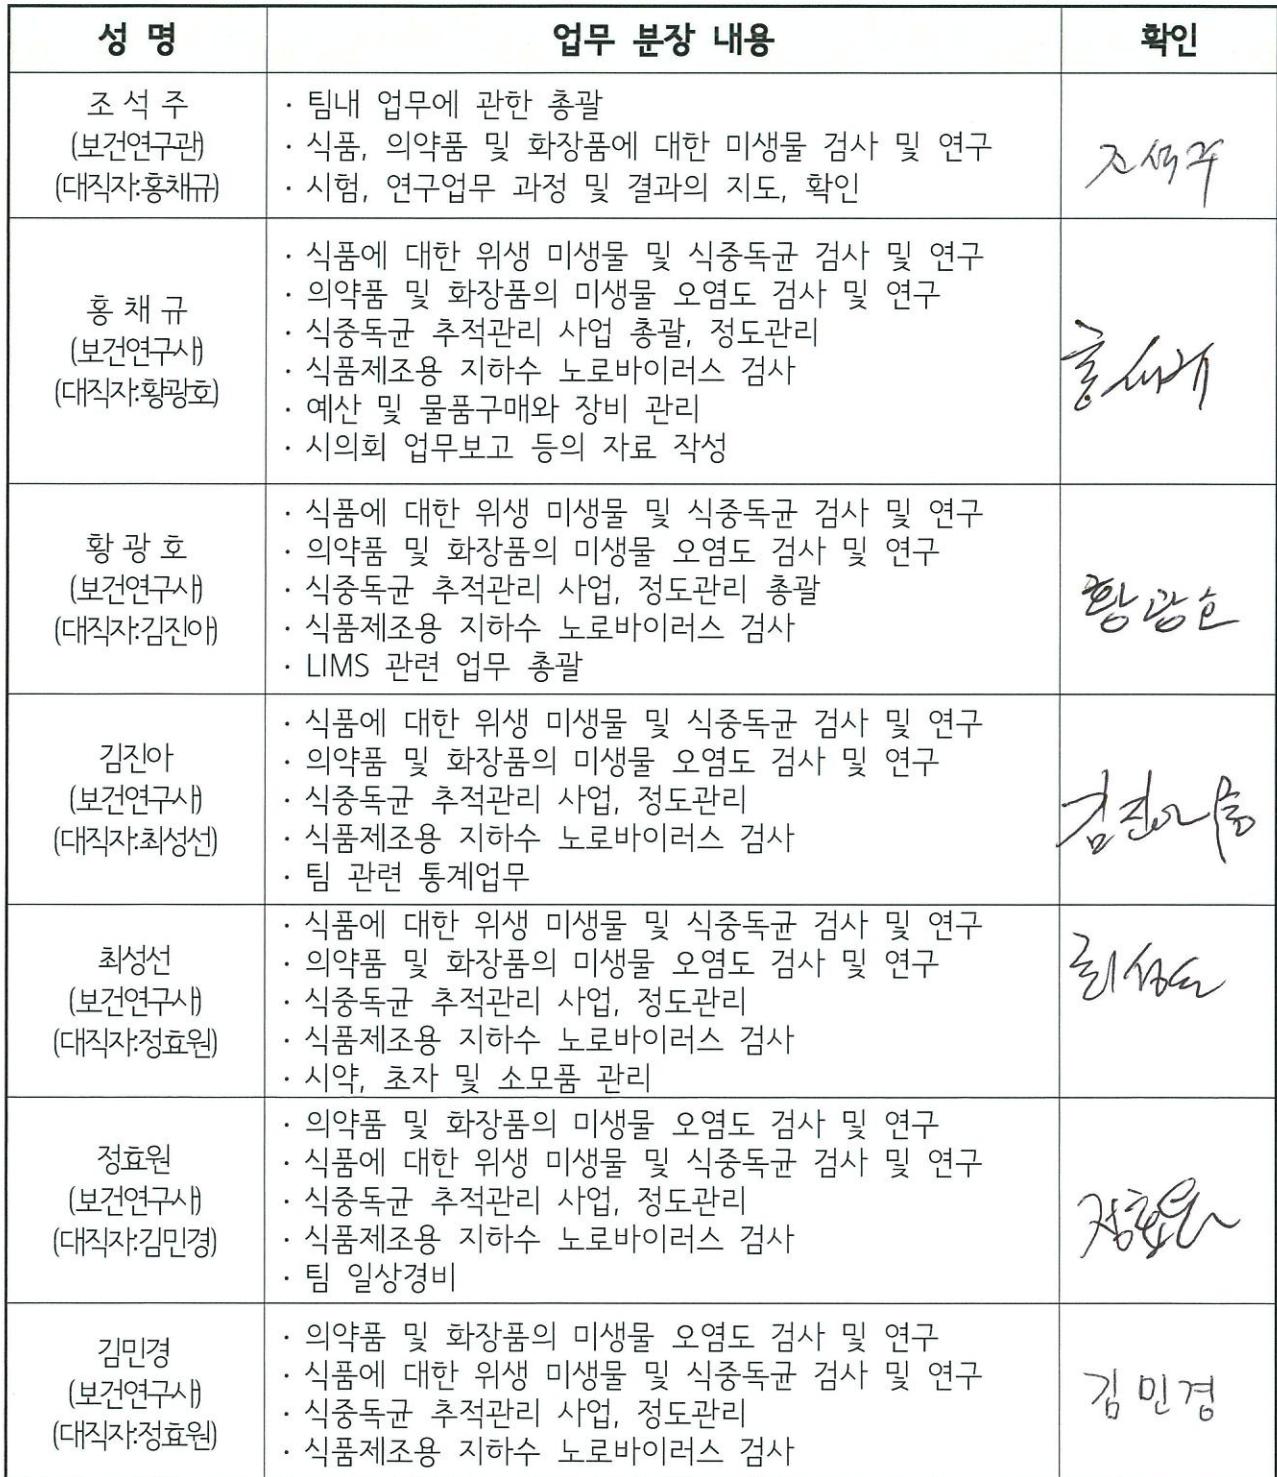 성 명 업무 분장 내용 확인
조 석 주
(보건연구관)
(대직자:홍채규)
· 팀내 업무에 관한 총괄
· 식품, 의약품 및 화장품에 대한 미생물 검사 및 연구
· 시험, 연구업무 과정 및 결과의 지도, 확인
조석주
홍 채 규
(보건연구사)
(대직자:황광호)
· 식품에 대한 위생 미생물 및 식중독균 검사 및 연구
· 의약품 및 화장품의 미생물 오염도 검사 및 연구
· 식중독균 추적관리 사업 총괄, 정도관리
· 식품제조용 지하수 노로바이러스 검사
· 예산 및 물품구매와 장비 관리
· 시의회 업무보고 등의 자료 작성
황 광 호
(보건연구사)
(대직자:김진아)
· 식품에 대한 위생 미생물 및 식중독균 검사 및 연구
· 의약품 및 화장품의 미생물 오염도 검사 및 연구
· 식중독균 추적관리 사업, 정도관리 총괄
· 식품제조용 지하수 노로바이러스 검사
· LIMS 관련 업무 총괄
황광호
김진아
(보건연구사)
(대직자:최성선)
· 식품에 대한 위생 미생물 및 식중독균 검사 및 연구
· 의약품 및 화장품의 미생물 오염도 검사 및 연구
· 식중독균 추적관리 사업, 정도관리
· 식품제조용 지하수 노로바이러스 검사
· 팀 관련 통계업무
최성선
(보건연구사)
(대직자:정효원)
· 식품에 대한 위생 미생물 및 식중독균 검사 및 연구
· 의약품 및 화장품의 미생물 오염도 검사 및 연구
· 식중독균 추적관리 사업, 정도관리
· 식품제조용 지하수 노로바이러스 검사
· 시약, 초자 및 소모품 관리
최성선
정효원
(보건연구사)
(대직자:김민경)
· 의약품 및 화장품의 미생물 오염도 검사 및 연구
· 식품에 대한 위생 미생물 및 식중독균 검사 및 연구
· 식중독균 추적관리 사업, 정도관리
· 식품제조용 지하수 노로바이러스 검사
· 팀 일상경비
정효원
김민경
(보건연구사)
(대직자:정효원)
· 의약품 및 화장품의 미생물 오염도 검사 및 연구
· 식품에 대한 위생 미생물 및 식중독균 검사 및 연구
· 식중독균 추적관리 사업, 정도관리
· 식품제조용 지하수 노로바이러스 검사
김민경